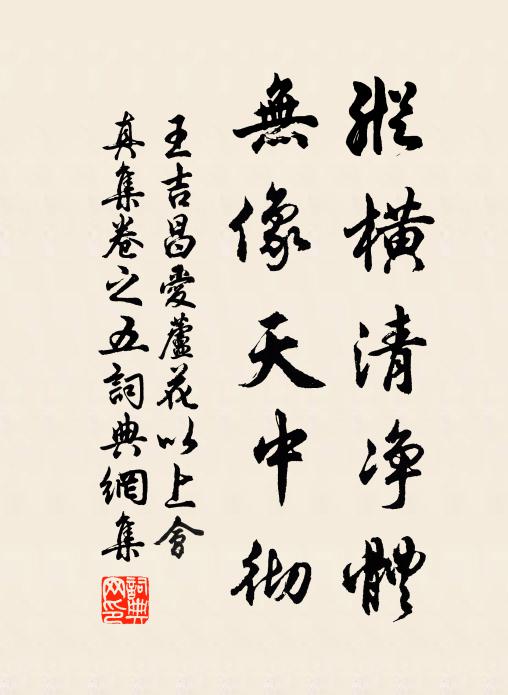 縱橫清净體
無像天中彻
王吉昌愛蘆花以上會
真集卷之五詞典網集
詞典網印